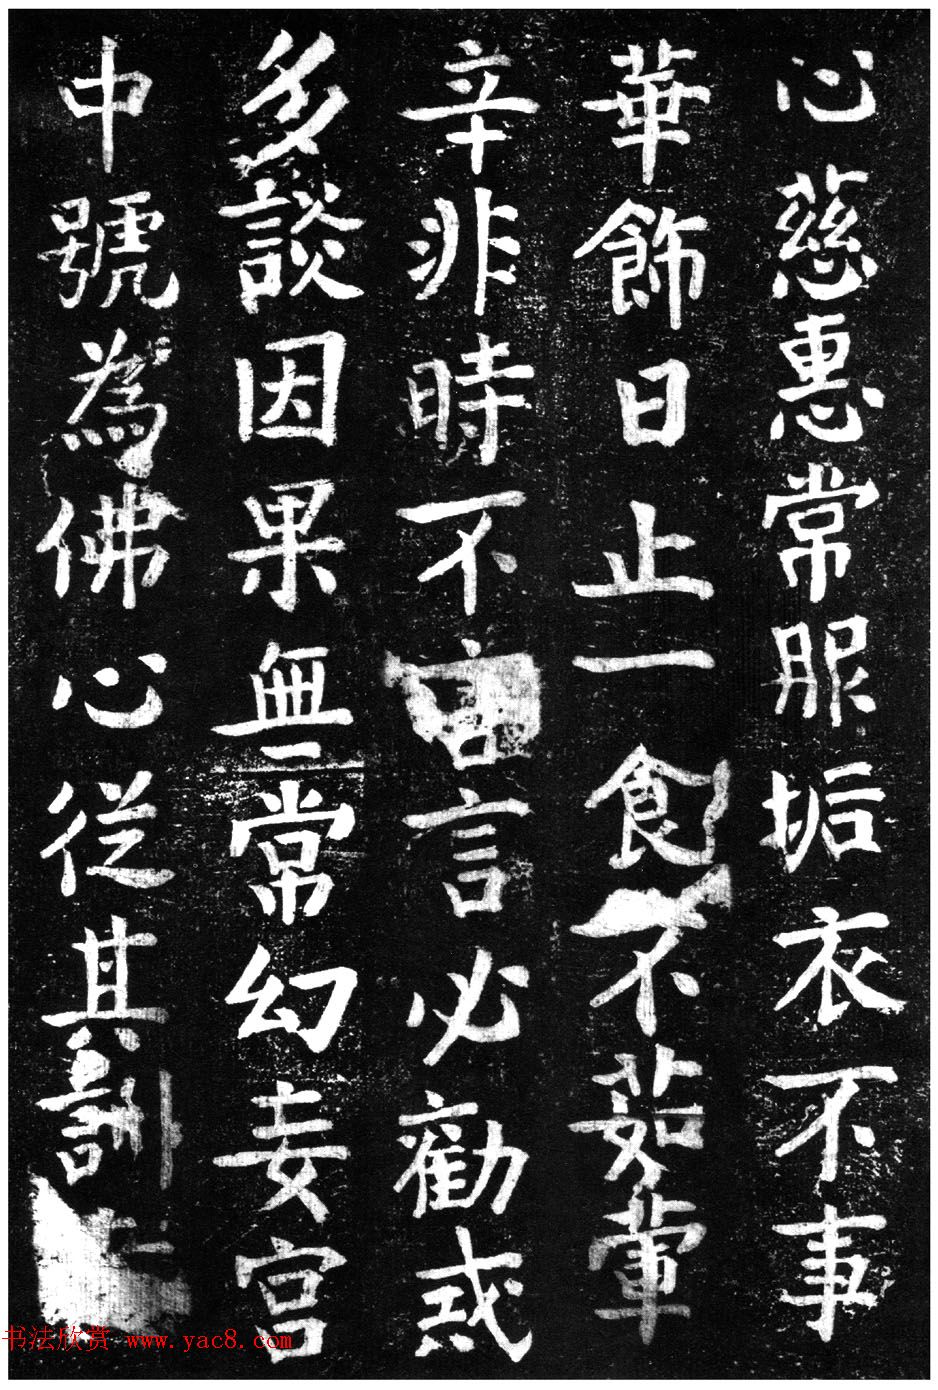 心慈惠常服垢衣不事
華飾日止一食不茹葷
辛非時不言言必勸戒
多談因果無常幻妄宫
中號為佛心從其訓
书法欣赏 www.yac8.com